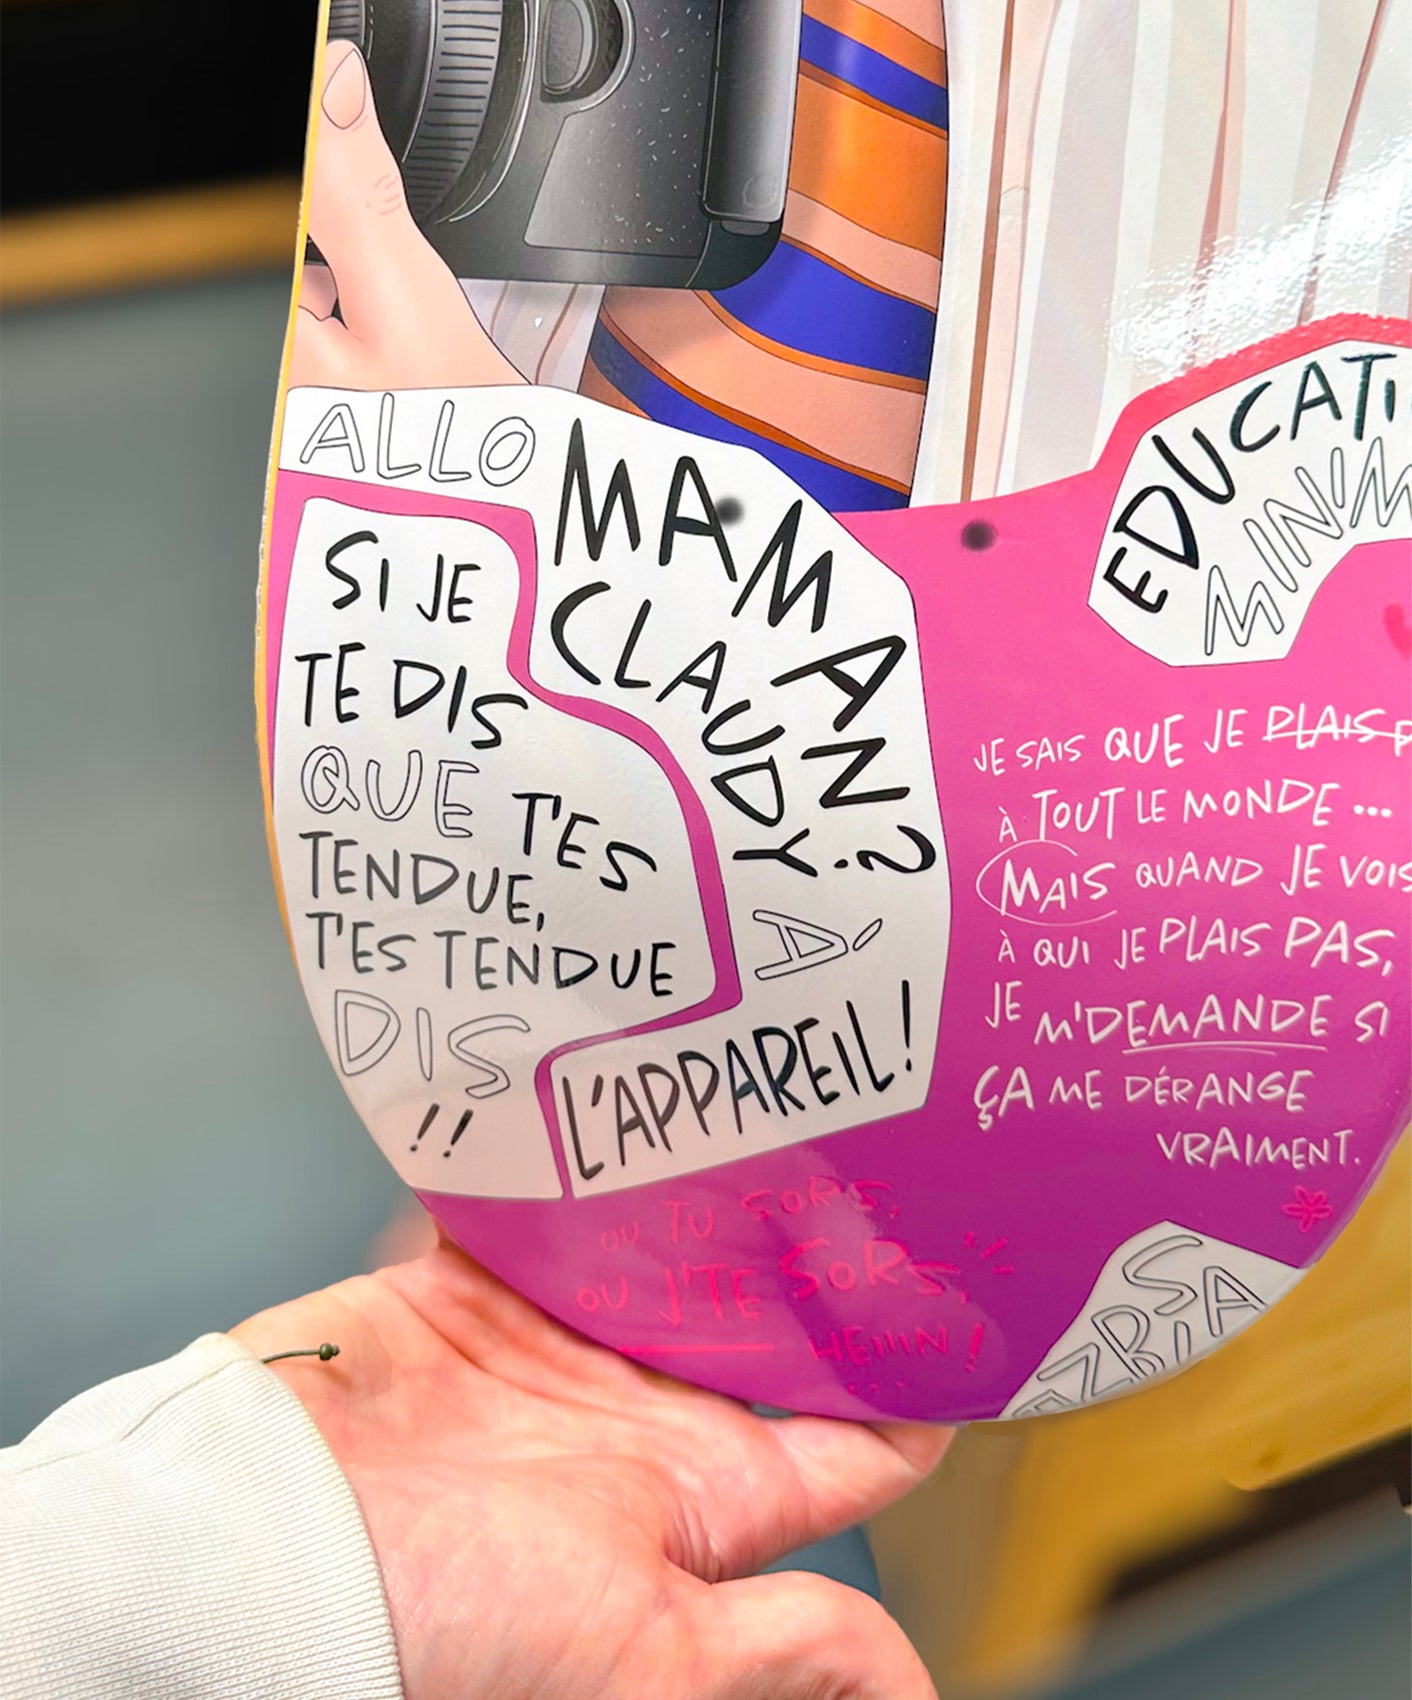 ALLO
MAMAN?
CLAUDY À
L'APPAREIL!
SI JE
TE DIS
QUE T'ES
TENDUE,
T'ES TENDUE
DIS
!!
EDUCATI
MINIM
JE SAIS QUE JE PLAIS P
À TOUT LE MONDE...
MAIS QUAND JE VOIS
À QUI JE PLAIS PAS,
JE M'DEMANDE SI
ÇA ME DÉRANGE
VRAIMENT.
OU TU SORS,
OU J'TE SORS,
HEIIIN !
...